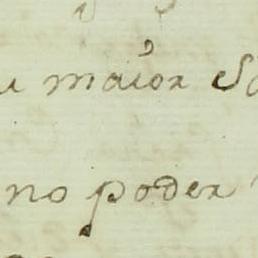 maior
no poder